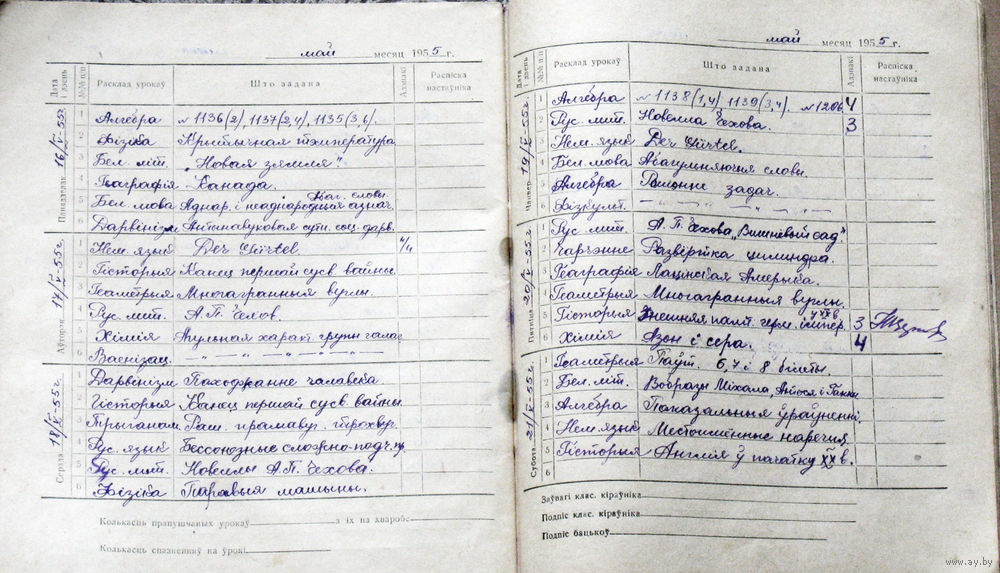 май месяц 1955 г.
Дата і дзень №№ п/п Расклад урокаў Што задана Адзнакі Распіска настаўніка
Панядзелак 16/V-55г.
1 Алгебра №1136(2), 1137(2,4), 1135(3,6).
2 Фізіка Крытычная тэмпература
3 Бел. літ. „Новая зямля".
4 Геаграфія Канада.
5 Бел. мова Аднар. і неаднародныя азнач. Абаг. словы.
6 Дарвінізм Антынавуковая сутн. соц. дарв.
Аўторак 17/V-55г.
1 Нем. язык Der Gürtel. 4/4
2 Гісторыя Канец першай сусв. вайны.
3 Геаметрыя Многагранныя вуглы.
4 Рус. лит. А.П. Чехов.
5 Хімія Агульная характ. групы галаг.
6 Ваенізац. — " — " — " — " —
Серада 18/V-55г.
1 Дарвінізм Паходжанне чалавека.
2 Гісторыя Канец першай сусв. вайны.
3 Трыганам. Раш. прамавуг. трохвуг.
4 Рус. язык Бессоюзные сложно-подч. пр.
5 Рус. лит. Новеллы А.П. Чехова.
6 Фізіка Паравыя машыны.
Колькасць прапушчаных урокаў з іх на хваробе
Колькасць спазненняў на ўрокі
май месяц 1955 г.
Дата і дзень №№ п/п Расклад урокаў Што задана Адзнакі Распіска настаўніка
Чацвер 19/V-55г.
1 Алгебра №1138(1,4) 1139(3,4). №1206 4
2 Рус. лит. Новелла Чехова. 3
3 Нем. язык Der Gürtel.
4 Бел. мова Абагульняючыя словы.
5 Алгебра Рашэнне задач.
6 Фізкульт. — " — " — " — " —
Пятніца 20/V-55г.
1 Рус. лит. А.П. Чехова „Вишневый сад".
2 Чарчэнне Развёртка цилиндра.
3 Геаграфія Лацінская Амерыка.
4 Геаметрыя Многагранныя вуглы.
5 Гісторыя Знешняя паліт. герм. імпер. у XX в. 3
6 Хімія Азон і сера. 4
Субота 21/V-55г.
1 Геаметрыя Паўт. 6, 7 і 8 білеты.
2 Бел. літ. Вобразы Міхала, Антося і Ганны
3 Алгебра Паказальныя ўраўненні.
4 Нем. язык Местоименные наречия.
5 Гісторыя Англія ў пачатку XX в.
6
Заўвагі клас. кіраўніка
Подпіс клас. кіраўніка
Подпіс бацькоў
www.ay.by